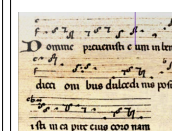 Domine preuenisti eum in ben
dicti om bus dulcedi nis posu
isti in ca pite eius coro nam